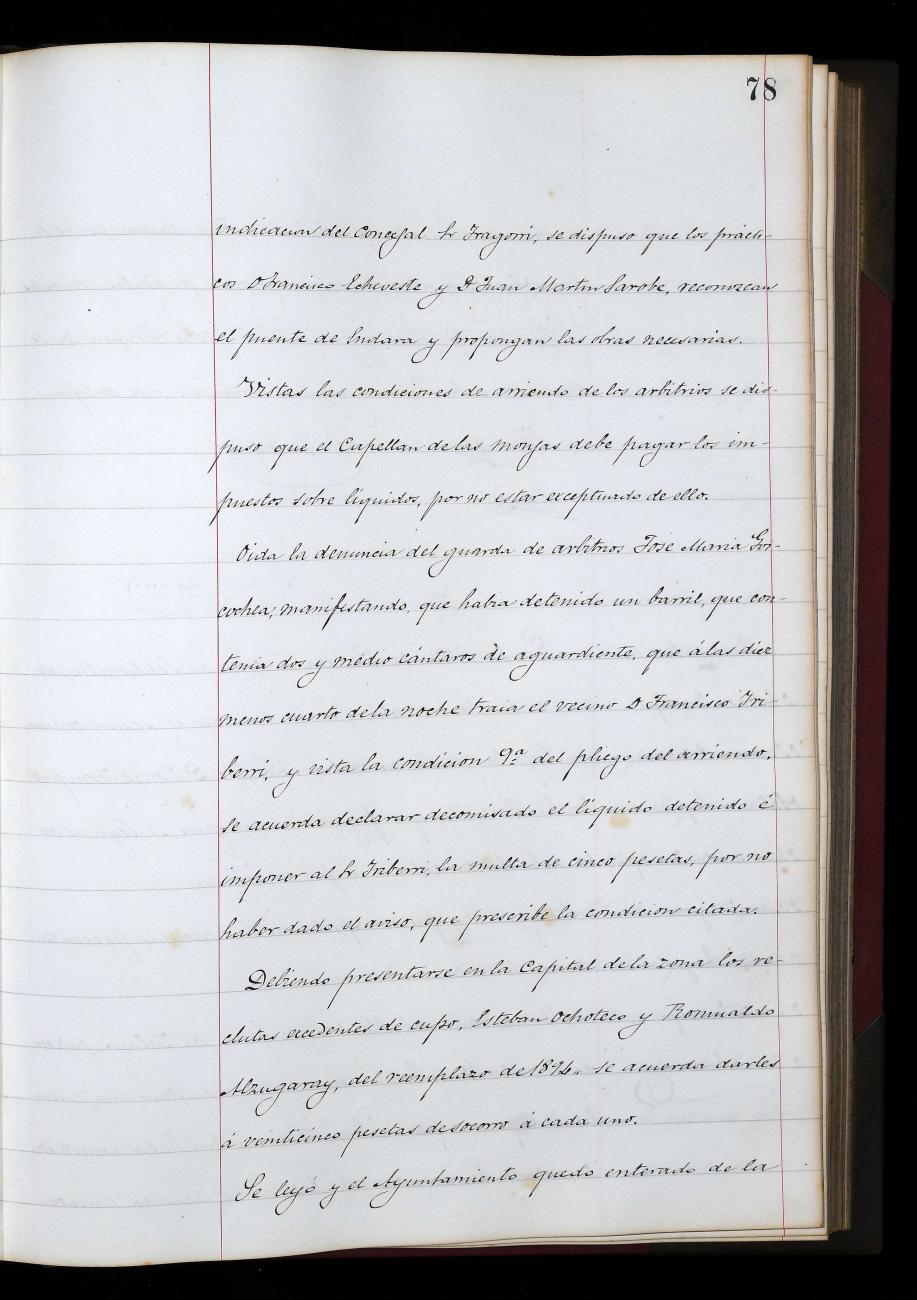 78
indicacion del Concejal Sr Iragorri, se dispuso que los prácti-
cos D Francisco Echeveste y D Juan Martin Sarobe, reconozcan
el puente de Endara y propongan las obras necesarias.
Vistas las condiciones de arriendo de los arbitrios se dis-
puso que el Capellan de las Monjas debe pagar los im-
puestos sobre líquidos, por no estar exceptuado de ello.
Oida la denuncia del guarda de arbitrios Jose Maria Goi-
cochea, manifestando, que habia detenido un barril, que con-
tenia dos y medio cántaros de aguardiente, que á las diez
menos cuarto de la noche traia el vecino D Francisco Iri-
berri, y vista la condicion 9ª del pliego del arriendo,
se acuerda declarar decomisado el líquido detenido é
imponer al Sr Iriberri, la multa de cinco pesetas, por no
haber dado el aviso, que prescribe la condicion citada.
Debiendo presentarse en la Capital de la zona los re-
clutas excedentes de cupo, Esteban Ochoteco y Romualdo
Alzugaray, del reemplazo de 1894,, se acuerda darles
á veinticinco pesetas de socorro á cada uno.
Se leyó y el Ayuntamiento quedo enterado de la